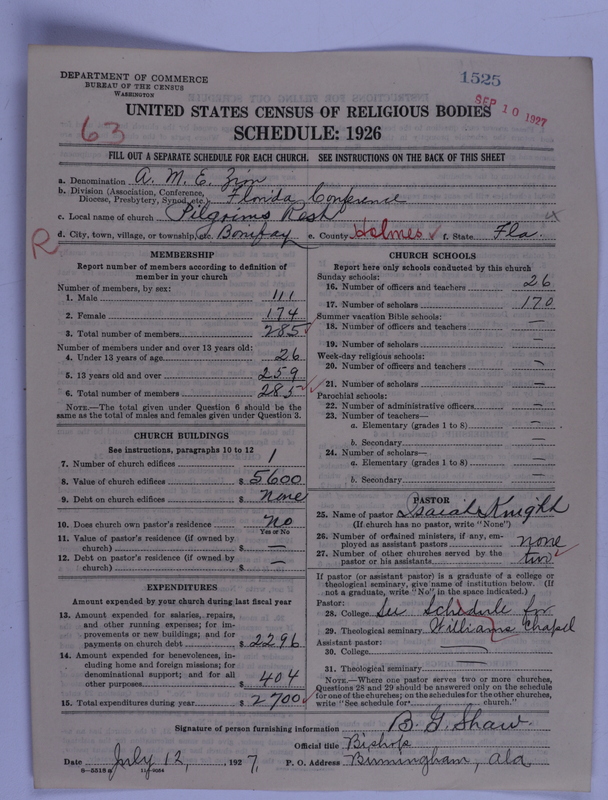 DEPARTMENT OF COMMERCE
BUREAU OF THE CENSUS
WASHINGTON
1525
SEP 10 1927
63
UNITED STATES CENSUS OF RELIGIOUS BODIES
SCHEDULE: 1926
FILL OUT A SEPARATE SCHEDULE FOR EACH CHURCH. SEE INSTRUCTIONS ON THE BACK OF THIS SHEET
a. Denomination A. M. E. Zion
b. Division (Association, Conference, Diocese, Presbytery, Synod, etc.) Florida Conference
c. Local name of church Pilgrims Rest
d. City, town, village, or township, etc. Bonifay e. County Holmes f. State Fla.
R
MEMBERSHIP
Report number of members according to definition of
member in your church
Number of members, by sex:
1. Male 111
2. Female 174
3. Total number of members 285
Number of members under and over 13 years old:
4. Under 13 years of age 26
5. 13 years old and over 259
6. Total number of members 285
NOTE.—The total given under Question 6 should be the
same as the total of males and females given under Question 3.
CHURCH BUILDINGS
See instructions, paragraphs 10 to 12
7. Number of church edifices 1
8. Value of church edifices $ 5600
9. Debt on church edifices $ none
10. Does church own pastor's residence No
Yes or No
11. Value of pastor's residence (if owned by
church) $ —
12. Debt on pastor's residence (if owned by
church) $ —
EXPENDITURES
Amount expended by your church during last fiscal year
13. Amount expended for salaries, repairs,
and other running expenses; for im-
provements or new buildings; and for
payments on church debt $ 2296
14. Amount expended for benevolences, in-
cluding home and foreign missions; for
denominational support; and for all
other purposes $ 404
15. Total expenditures during year $ 2700
CHURCH SCHOOLS
Report here only schools conducted by this church
Sunday schools:
16. Number of officers and teachers 26
17. Number of scholars 170
Summer vacation Bible schools:
18. Number of officers and teachers —
19. Number of scholars —
Week-day religious schools:
20. Number of officers and teachers —
21. Number of scholars —
Parochial schools:
22. Number of administrative officers —
23. Number of teachers—
a. Elementary (grades 1 to 8) —
b. Secondary —
24. Number of scholars—
a. Elementary (grades 1 to 8) —
b. Secondary —
PASTOR
25. Name of pastor Isaiah Knight
(If church has no pastor, write "None")
26. Number of ordained ministers, if any, em-
ployed as assistant pastors none
27. Number of other churches served by the
pastor or his assistants two
If pastor (or assistant pastor) is a graduate of a college or
theological seminary, give name of institution below. (If
not a graduate, write "No" in the space indicated.)
Pastor:
28. College See Schedule for
29. Theological seminary Williams Chapel
Assistant pastor:
30. College —
31. Theological seminary —
NOTE.—Where one pastor serves two or more churches,
Questions 28 and 29 should be answered only on the schedule
for one of the churches; on the schedules for the other churches,
write "See schedule for church."
Signature of person furnishing information B. G. Shaw
Official title Bishop
Date July 12, 1927. P. O. Address Birmingham, Ala